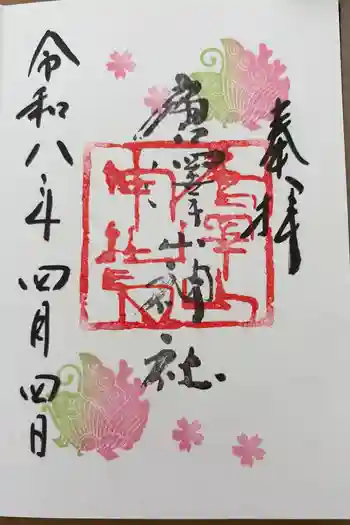 奉拝
唐澤山神社
令和八年四月四日